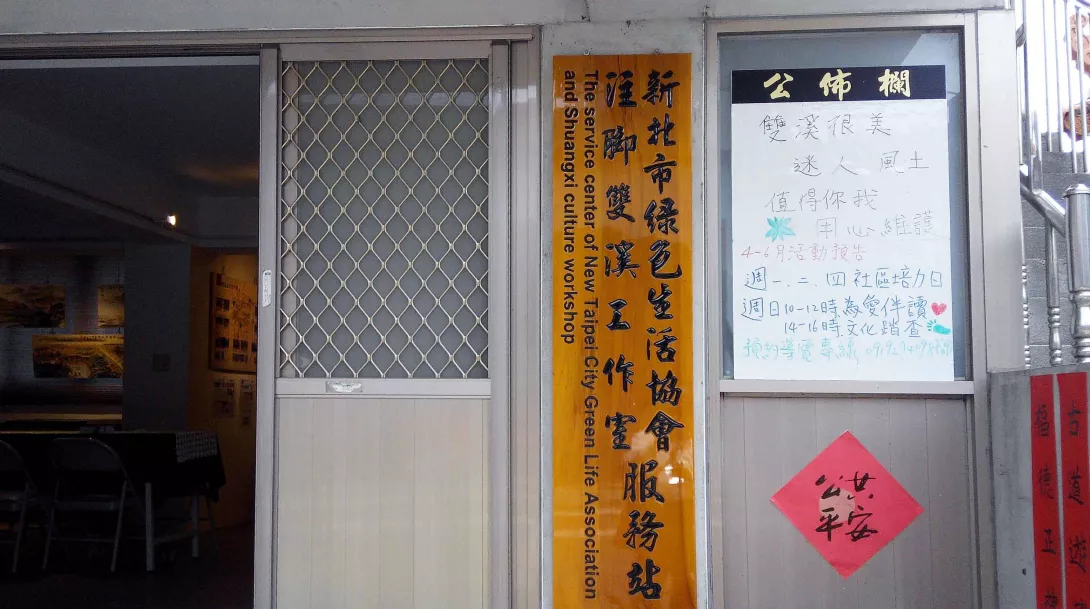 新北市绿色生活協會
注脚雙溪工作室服務站
The service center of New Taipei City Green Life Association
and Shuangxi culture workshop
公佈欄
雙溪很美
迷人風土
值得你我
用心維護
4-6月活動預告
週一、二、四 社區培力日
週日10-12時為愛伴讀
14-16時文化踏查
預約導覽專線
公共
平安
古道
福德正